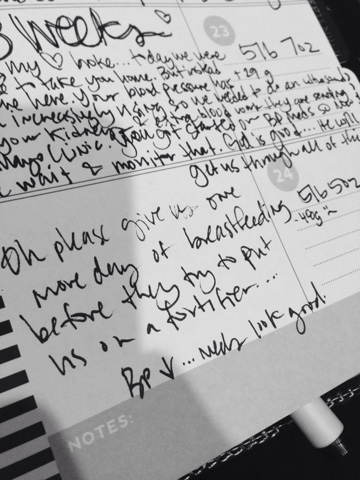 3 Weeks
23
my ♡ broke... today we were 5lb 7oz
to take you home. But instead +29 g
here. Your blood pressure has
increasingly rising so we needed to do an ultrasound
your kidneys & blood work they are sending
Mayo Clinic. You got started on BP meds so now
wait & monitor that. God is good... He will
get us through all of this
24
5lb 5oz
-49g
Oh please give us one
more day of breastfeeding
before they try to put
us on a fortifier....
BP ↓ ... meds look good.
NOTES: